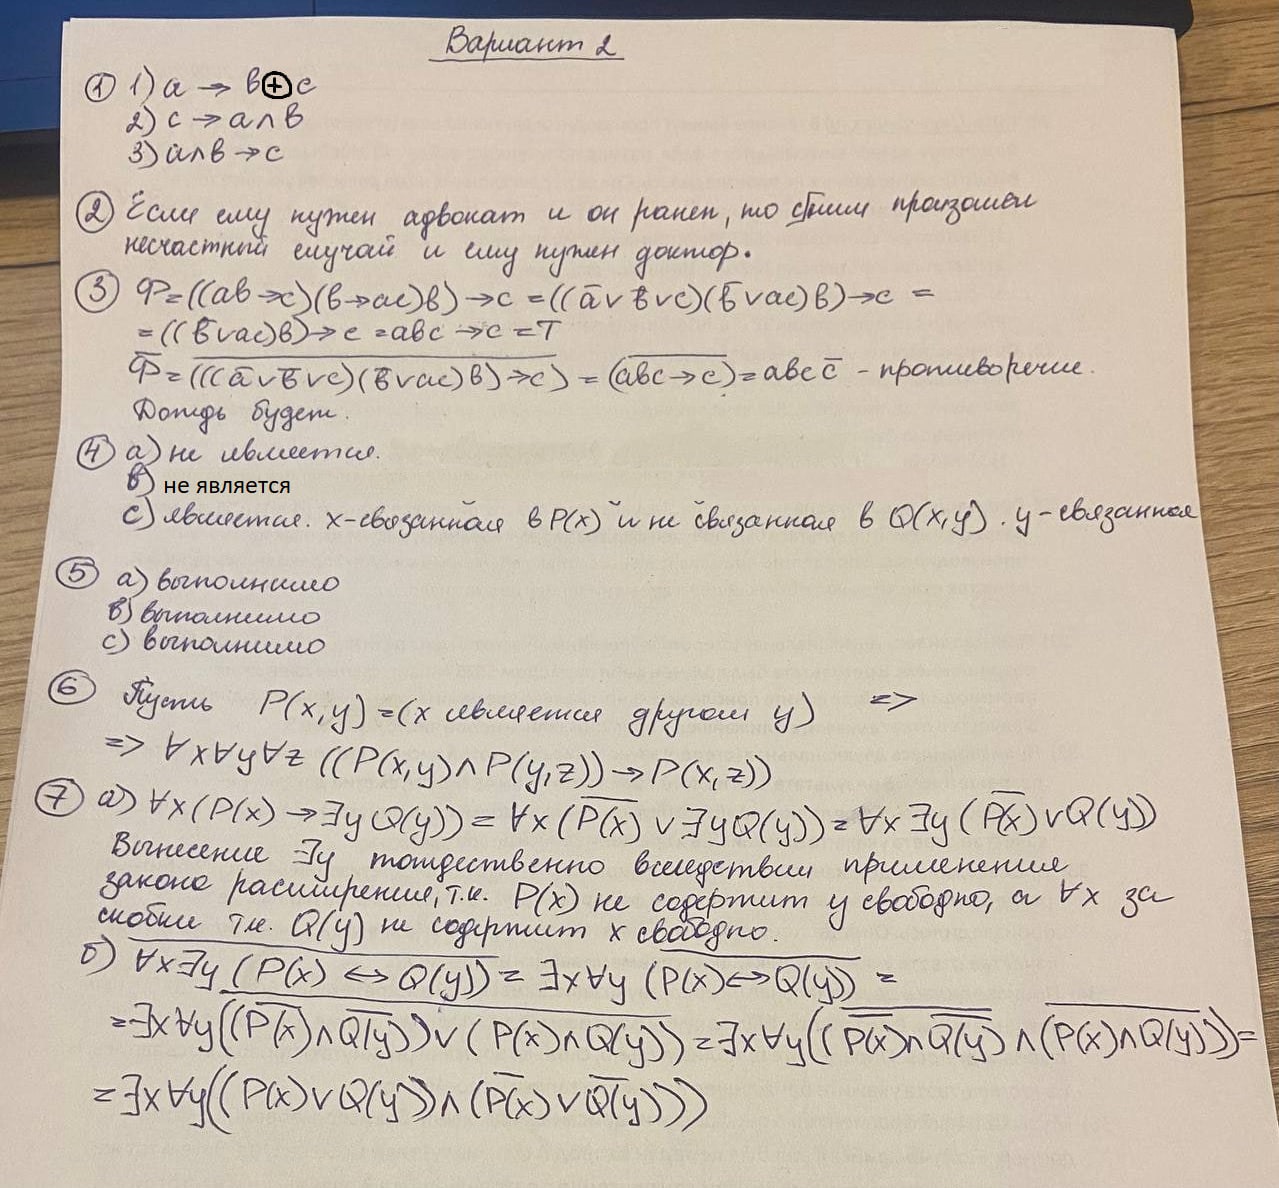 Вариант 2
① 1) a → в ⊕ c
2) c → a ∧ в
3) a ∧ в → c
② Если ему нужен адвокат и он ранен, то с ним произошел
несчастный случай и ему нужен доктор.
③ Ф = ((aв → c)(в → ac)в) → c = ((a̅ ∨ в̅ ∨ c)(в̅ ∨ ac)в) → c =
= ((в̅ ∨ ac)в) → c = aвc → c = T
Ф̅ = \overline{(((a̅ ∨ в̅ ∨ c)(в̅ ∨ ac)в) → c)} = \overline{(aвc → c)} = aвc c̅ - противоречие.
Дождь будет.
④ a) не является.
в) не является
c) является. x-связанная в P(x) и не связанная в Q(x,y). y-связанная
⑤ a) выполнимо
в) выполнимо
c) выполнимо
⑥ Пусть P(x,y) = (x является другом y) =>
=> ∀x∀y∀z ((P(x,y) ∧ P(y,z)) → P(x,z))
⑦ a) ∀x(P(x) → ∃y Q(y)) = ∀x(\overline{P(x)} ∨ ∃yQ(y)) = ∀x∃y(\overline{P(x)} ∨ Q(y))
Вынесение ∃y тождественно вследствии применения
закона расширения, т.к. P(x) не содержит y свободно, а ∀x за
скобки т.к. Q(y) не содержит x свободно.
б) \overline{∀x∃y (P(x) ↔ Q(y))} = ∃x∀y \overline{(P(x) ↔ Q(y))} =
= ∃x∀y(\overline{(\overline{P(x)} ∧ \overline{Q(y)}) ∨ (P(x) ∧ Q(y))}) = ∃x∀y((\overline{\overline{P(x)} ∧ \overline{Q(y)}} ∧ (\overline{P(x) ∧ Q(y)})) =
= ∃x∀y((P(x) ∨ Q(y)) ∧ (\overline{P(x)} ∨ \overline{Q(y)}))